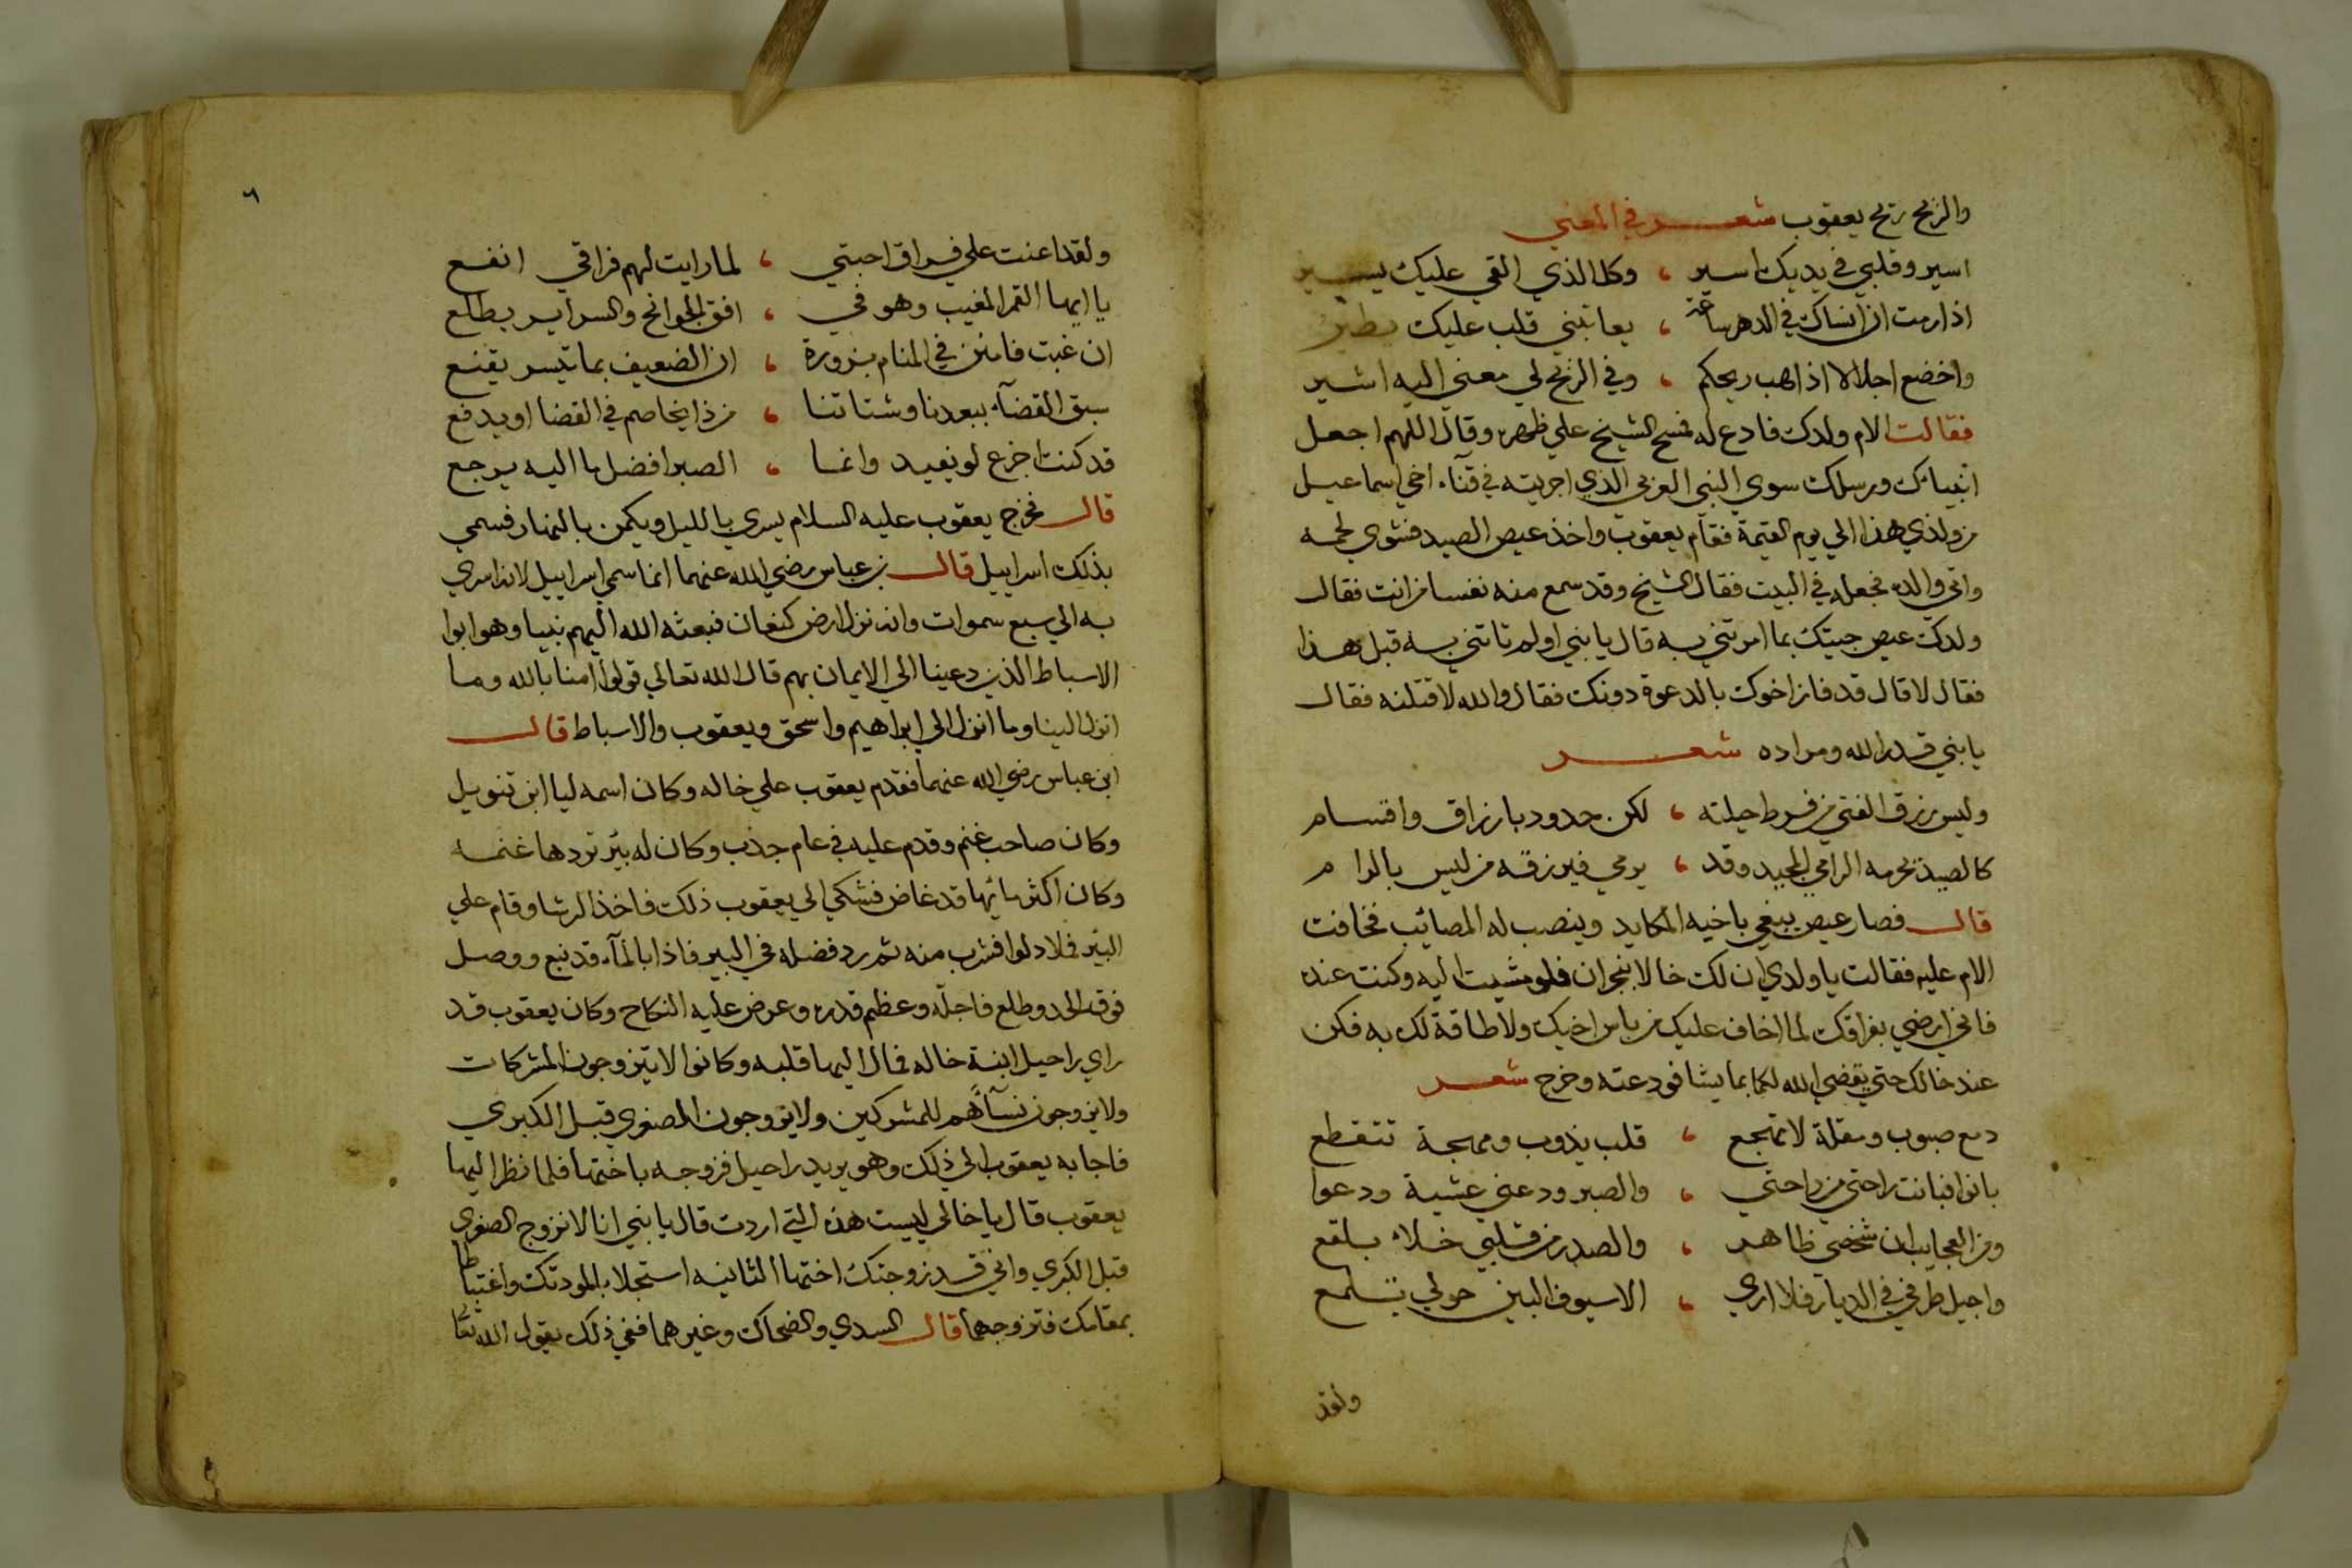 والريح ريح يعقوب شعر في المعني
اسير وقلبي في يديك اسير ، وكل الذي القي عليك يسير
اذا رمت ان انساك في الدهر ساعة ، يعاتبني قلب عليك يطير
واخضع اجلالا اذا هب ريحكم ، وفي الريح لي معني اليه اشير
فقالت الام ولدك فادع له فمسح الشيخ علي ظهره وقال اللهم اجعل
انبيائك ورسلك سوي النبي العربي الذي اجريته في قناء اخي اسماعيل
من ولدي هذا الي يوم القيمة فقام يعقوب واخذ عيص الصيد فشوي لحمه
واتي والده فجعله في البيت فقال الشيخ وقد سمع منه نفسا من انت فقال
ولدك عيص جيتك بما امرتني به قال يا بني اولم تاتني به قبل هذا
فقال لا قال قد فاز اخوك بالدعوة دونك فقال والله لاقتلنه فقال
يا بني قدر الله ومراده شعر
وليس رزق الفتي من فرط حيلته ، لكن حدود بارزاق واقسام
كالصيد يحرمه الرامي المجيد وقد ، يرمي فيرزقه من ليس بالرام
قال فصار عيص يبغي باخيه المكايد وينصب له المصائب فخافت
الام عليه فقالت يا ولدي ان لك خالا بنجران فلو مشيت اليه وكنت عنده
فاني ارضي بفراقك لما اخاف عليك من باس اخيك ولا طاقة لك به فكن
عند خالك حتي يقضي الله لكما بما يشا فودعته وخرج شعر
دمع صبوب ومقلة لا تهجع ، قلب يذوب ومهجة تتقطع
بانوا فبانت راحتي من راحتي ، والصبر ودعني عشية ودعوا
ومن العجايب ان شخصي ظاهر ، والصدر من قلبي خلاء بلقع
واجيل طرفي في الديار فلا اري ، الا سيوف البين حولي تلمع
ولقد
٦
ولقد اعنت علي فراق احبتي ، لما رايت لهم فراقي انفع
يا ايها القمر المغيب وهو في ، افق الجوانح والسراير يطلع
ان غبت فامنن في المنام بزورة ، ان الضعيف بما تيسر يقنع
سبق القضاء ببعدنا وشتاتنا ، من ذا يخاصم في القضا او يدفع
قد كنت اجزع لو يفيد وانما ، الصبر افضل ما اليه يرجع
قال فخرج يعقوب عليه السلام يسري بالليل ويكمن بالنهار فسمي
بذلك اسراييل قال بن عباس رضي الله عنهما انما سمي اسراييل لانه اسري
به الي سبع سموات وانه نزل ارض كنعان فبعثه الله اليهم نبيا وهو ابوا
الاسباط الذين دعينا الي الايمان بهم قال الله تعالي قولوا امنا بالله وما
انزل الينا وما انزل الي ابراهيم واسحق ويعقوب والاسباط قال
ابن عباس رضي الله عنهما فقدم يعقوب علي خاله وكان اسمه ليا ابن تنويل
وكان صاحب غنم وقدم عليه في عام جذب وكان له بئر تردها غنمه
وكان اكثر مائها قد غاض فشكي الي يعقوب ذلك فاخذ الرشا وقام علي
البئر فملا دلوا فشرب منه ثم رد فضله في البير فاذا بالماء قد نبع ووصل
فوق الحد وطلع فاجله وعظم قدره وعرض عليه النكاح وكان يعقوب قد
راي راحيل ابنة خاله فمال اليها قلبه وكانوا لا يتزوجون المشركات
ولا يزوجون نسآءهم للمشركين ولا يزوجون الصغري قبل الكبري
فاجابه يعقوب الي ذلك وهو يريد راحيل فزوجه باختها فلما نظر اليها
يعقوب قال يا خالي ليست هذه التي اردت قال يا بني انا لا نزوج الصغري
قبل الكبري واني قد زوجتك اختها الثانيه استجلابا لمودتك واغتباطا
بمقامك فتزوجهما قال السدي والضحاك وغيرهما ففي ذلك يقول الله تعا